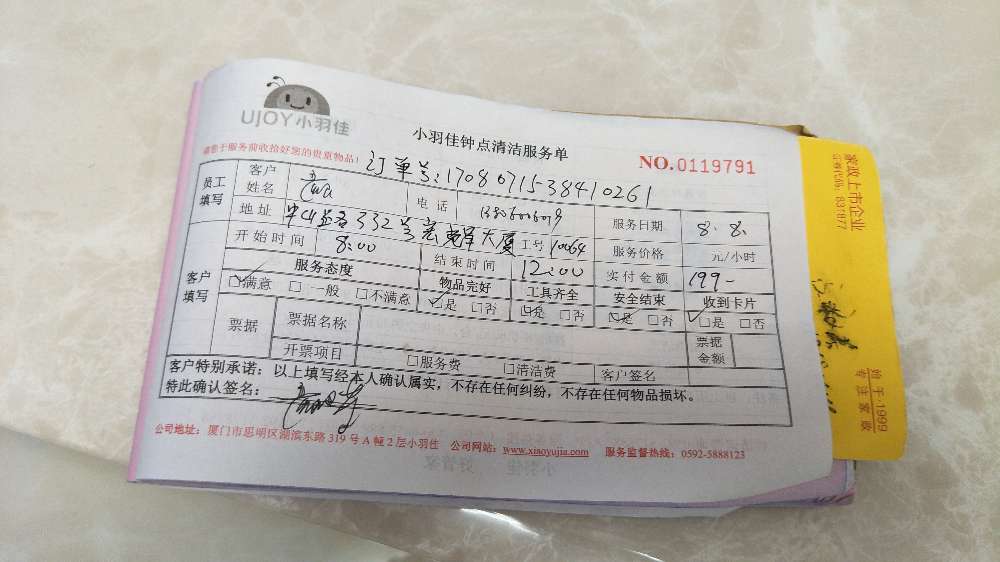 UJOY小羽佳
小羽佳钟点清洁服务单
请您于服务前收拾好您的贵重物品!
订单号:1708071538410261
NO.0119791
员工填写
客户姓名
电话
服务日期 8.8.
地址 332号 大厦
工号 10064
服务价格 元/小时
开始时间 8:00
结束时间 12:00
实付金额 199-
客户填写
服务态度 物品完好 工具齐全 安全结束 收到卡片
□满意 □一般 □不满意 □是 □否 □是 □否 □是 □否 □是 □否
票据 票据名称 票据金额
开票项目 □服务费 □清洁费 客户签名
客户特别承诺:以上填写经本人确认属实,不存在任何纠纷,不存在任何物品损坏。
特此确认签名:
公司地址:厦门市思明区湖滨东路319号A幢2层小羽佳 公司网站:www.xiaoyujia.com 服务监督热线:0592-5888123
家政上市企业
837877
始于·1999
专注家政